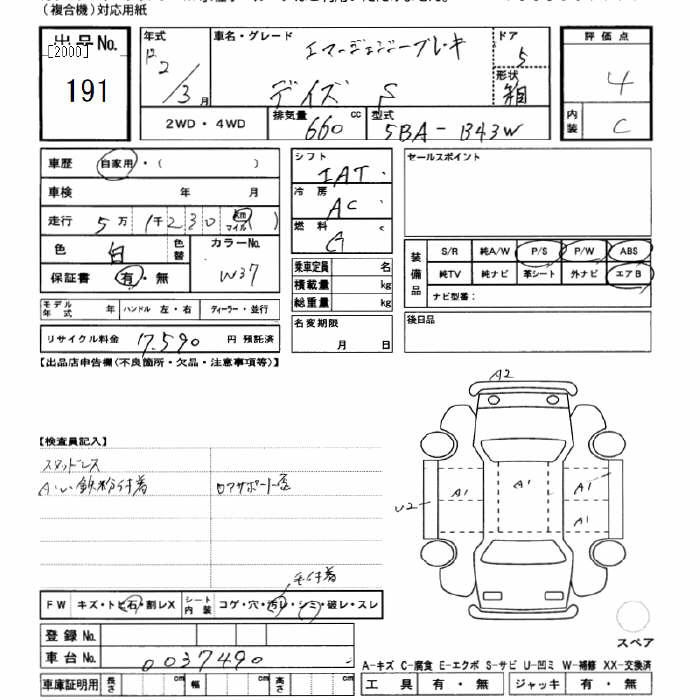 (複合機)対応用紙
出品No.
[2000]
191
年式
R2/3月
車名・グレード
エマージェンジーブレーキ
デイズ S
ドア
5
形状
箱
評価点
4
内装
C
2WD・4WD
排気量 660 cc
型式 5BA-B43W
車歴 自家用・( )
車検 年 月
走行 5万1千230 km マイル ( )
色 白 色替
カラーNo. W37
保証書 有・無
シフト
IAT
冷房
AC
燃料
G
乗車定員 名
積載量 kg
総重量 kg
名変期限
月 日
セールスポイント
装備品
S/R 純A/W P/S P/W ABS
純TV 純ナビ 革シート 外ナビ エアB
ナビ型番:
後日品
モデル年式 年 ハンドル 左・右 ディーラー・並行
リサイクル料金 17,590 円 預託済
【出品店申告欄(不良箇所・欠品・注意事項等)】
【検査員記入】
スタッドレス
鉄粉付着
コアサポート歪
毛付着
A2
A1
A1
A1
A1
U2
FW キズ・トビ石・割レX シート内装 コゲ・穴・汚レ・シミ・破レ・スレ
登録No.
車台No. 0037490
車庫証明用 長さ cm 幅 cm 高さ cm
スペア
A-キズ C-腐食 E-エクボ S-サビ U-凹ミ W-補修 XX-交換済
工具 有・無 ジャッキ 有・無